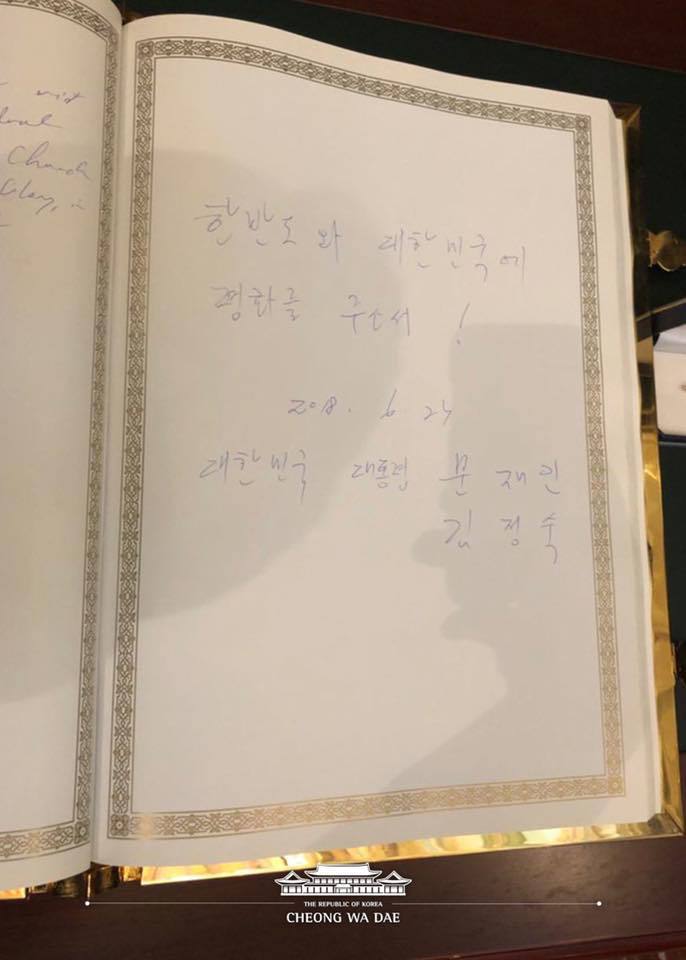 Church
한반도와 대한민국에
평화를 주소서!
2018. 6. 23
대한민국 대통령 문재인
김정숙
THE REPUBLIC OF KOREA
CHEONG WA DAE